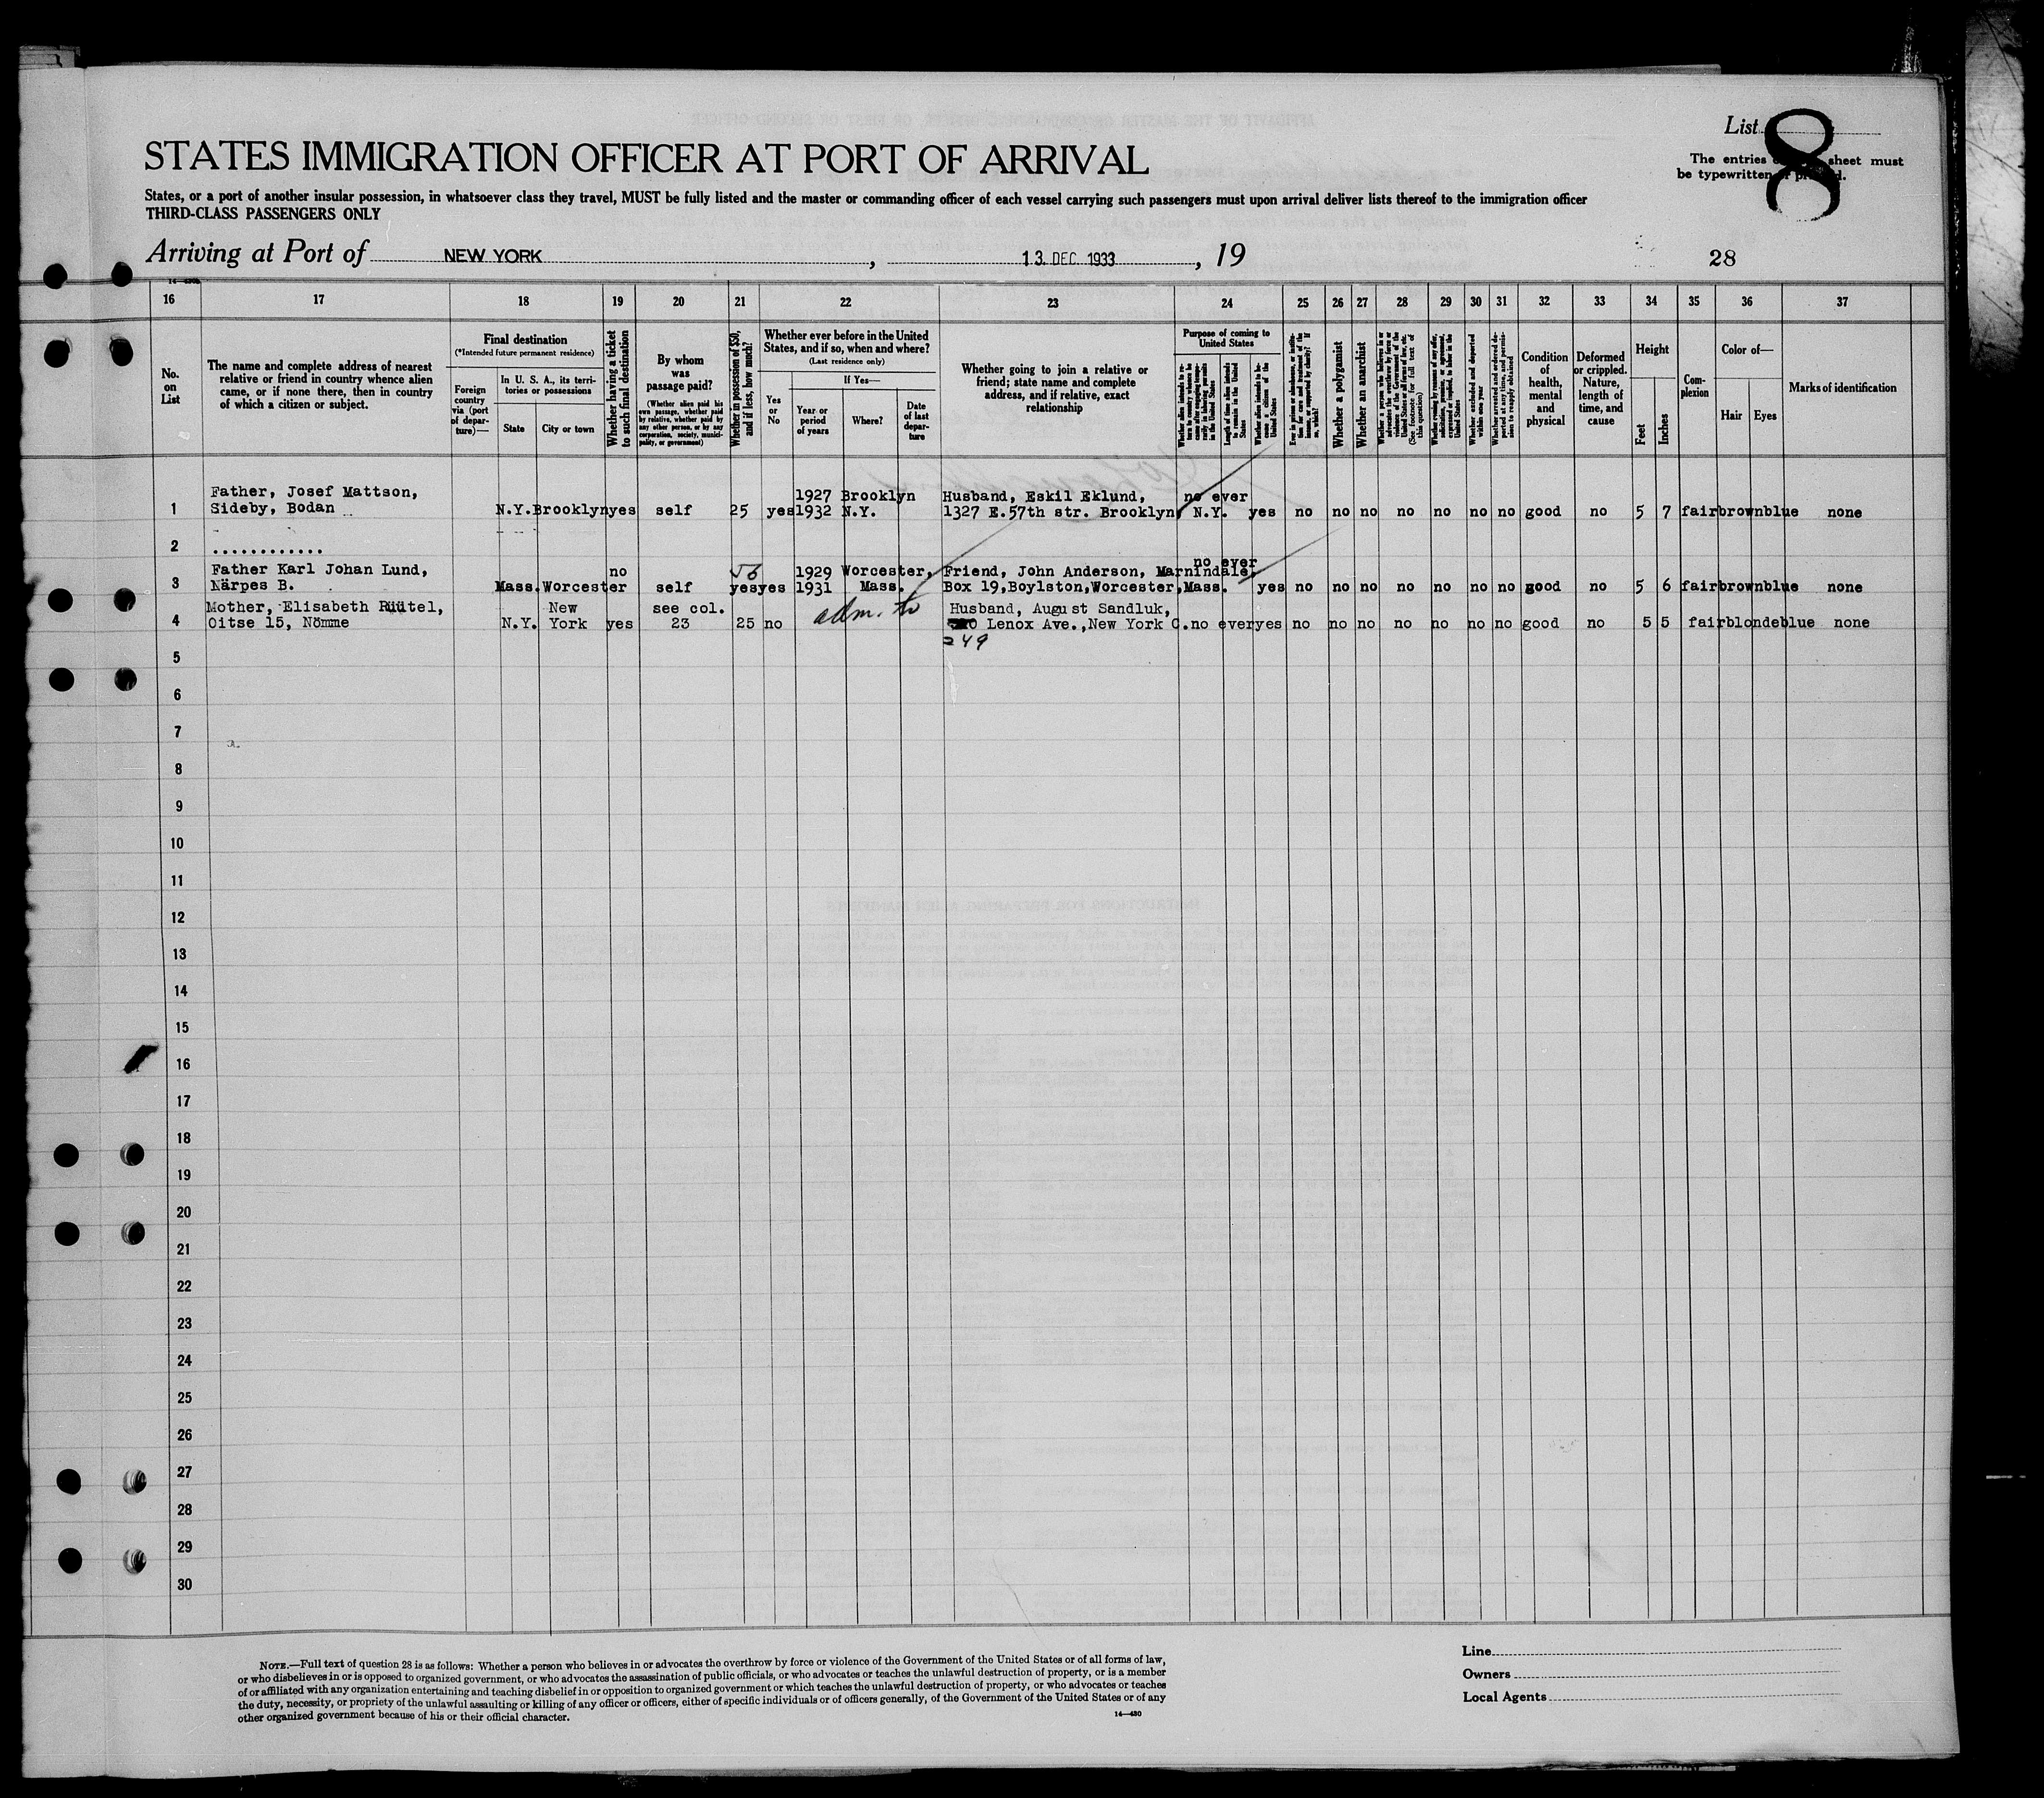 List 8
STATES IMMIGRATION OFFICER AT PORT OF ARRIVAL
The entries sheet must
be typewritten or printed.
States, or a port of another insular possession, in whatsoever class they travel, MUST be fully listed and the master or commanding officer of each vessel carrying such passengers must upon arrival deliver lists thereof to the immigration officer
THIRD-CLASS PASSENGERS ONLY
Arriving at Port of NEW YORK, 13 DEC 1933, 19 28
16 17 18 19 20 21 22 23 24 25 26 27 28 29 30 31 32 33 34 35 36 37
No. on List
The name and complete address of nearest relative or friend in country whence alien came, or if none there, then in country of which a citizen or subject.
Final destination
(*Intended future permanent residence)
Foreign country via (port of departure)—
In U. S. A., its territories or possessions
State
City or town
Whether having a ticket to such final destination
By whom was passage paid?
(Whether alien paid his own passage, whether paid by relative, whether paid by any other person, or by any corporation, society, municipality, or government)
Whether in possession of $50, and if less, how much?
Whether ever before in the United States, and if so, when and where?
(Last residence only)
Yes or No
If Yes—
Year or period of years
Where?
Date of last departure
Whether going to join a relative or friend; state name and complete address, and if relative, exact relationship
Purpose of coming to United States
Length of time alien intends to remain in the United States
Whether alien intends to become a citizen of the United States
Whether a polygamist
Whether an anarchist
(See footnote for full text of this question)
Whether excluded and deported within one year
Condition of health, mental and physical
Deformed or crippled. Nature, length of time, and cause
Height
Feet
Inches
Complexion
Color of—
Hair
Eyes
Marks of identification
Father, Josef Mattson, 1927 Brooklyn Husband, Eskil Eklund, no ever
1 Sideby, Bodan N.Y. Brooklyn yes self 25 yes 1932 N.Y. 1327 E.57th str. Brooklyn, N.Y. yes no no no no no no no good no 5 7 fair brown blue none
2 ............
Father Karl Johan Lund, no 56 1929 Worcester, Friend, John Anderson, Marnindale, no ever
3 Närpes B. Mass. Worcester self yes yes 1931 Mass. Box 19, Boylston, Worcester, Mass. yes no no no no no no no good no 5 6 fair brown blue none
Mother, Elisabeth Rüütel, New see col. adm. to Husband, August Sandluk,
4 Oitse 15, Nömme N.Y. York yes 23 25 no Lenox Ave., New York C. no ever yes no no no no no no no good no 5 5 fair blonde blue none
249
5
6
7
8
9
10
11
12
13
14
15
16
17
18
19
20
21
22
23
24
25
26
27
28
29
30
NOTE.—Full text of question 28 is as follows: Whether a person who believes in or advocates the overthrow by force or violence of the Government of the United States or of all forms of law,
or who disbelieves in or is opposed to organized government, or who advocates the assassination of public officials, or who advocates or teaches the unlawful destruction of property, or is a member
of or affiliated with any organization entertaining and teaching disbelief in or opposition to organized government or which teaches the unlawful destruction of property, or who advocates or teaches
the duty, necessity, or propriety of the unlawful assaulting or killing of any officer or officers, either of specific individuals or of officers generally, of the Government of the United States or of any
other organized government because of his or their official character.
14—430
Line
Owners
Local Agents